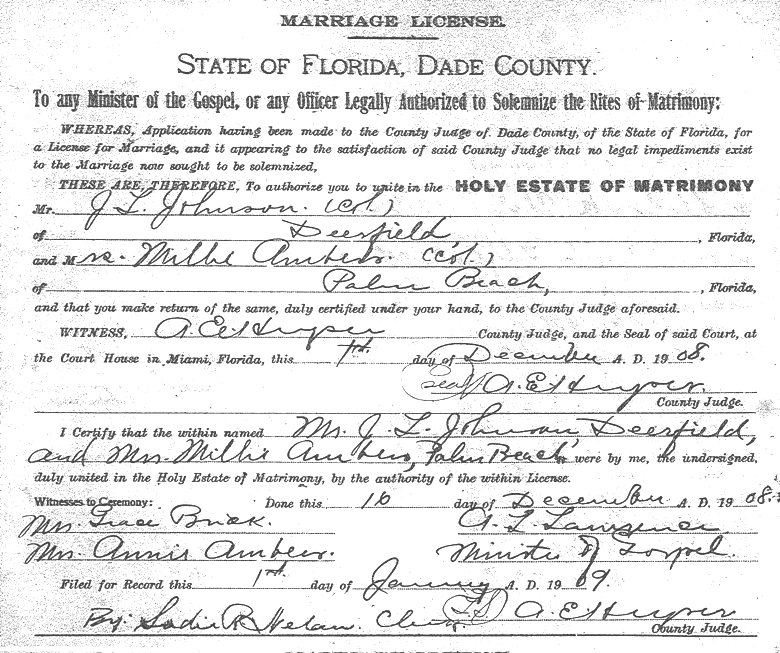 MARRIAGE LICENSE.
STATE OF FLORIDA, DADE COUNTY.
To any Minister of the Gospel, or any Officer Legally Authorized to Solemnize the Rites of Matrimony:
WHEREAS, Application having been made to the County Judge of Dade County, of the State of Florida, for
a License for Marriage, and it appearing to the satisfaction of said County Judge that no legal impediments exist
to the Marriage now sought to be solemnized,
THESE ARE, THEREFORE, To authorize you to unite in the HOLY ESTATE OF MATRIMONY
Mr. J L Johnson. (Col.)
of Deerfield, Florida,
and Mrs. Millie Ambers. (Col.)
of Palm Beach, Florida,
and that you make return of the same, duly certified under your hand, to the County Judge aforesaid.
WITNESS, A. E. Heyser County Judge, and the Seal of said Court, at
the Court House in Miami, Florida, this 1st. day of December A. D. 1908.
(seal) A. E. Heyser.
County Judge.
I Certify that the within named Mr. J. L. Johnson Deerfield,
and Mrs. Millie Ambers, Palm Beach, were by me, the undersigned,
duly united in the Holy Estate of Matrimony, by the authority of the within License.
Witnesses to Ceremony: Done this 16 day of December A. D. 1908.
Mrs. Grace Brick. A. L. Lawrence
Mrs. Annie Ambers. Minister of Gospel.
Filed for Record this 1st. day of January A. D. 1909.
By: Sadie R. (LS) A. E. Heyser
County Judge.